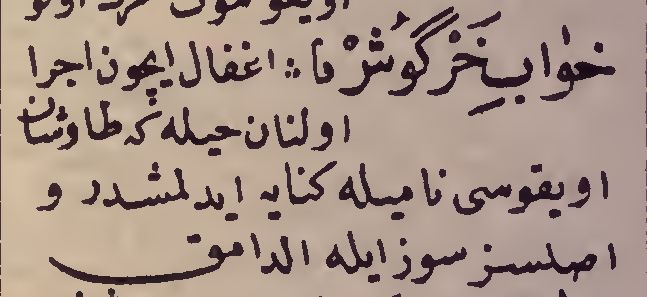 اويقو
خوٰابِ خَرْگُوشْ فا : اغفال ايچون اجرا
اولنان حيله كه طاوشان
اويقوسى ناميله كنايه ايدلمشدر و
اصلسز سوز ايله الدامق